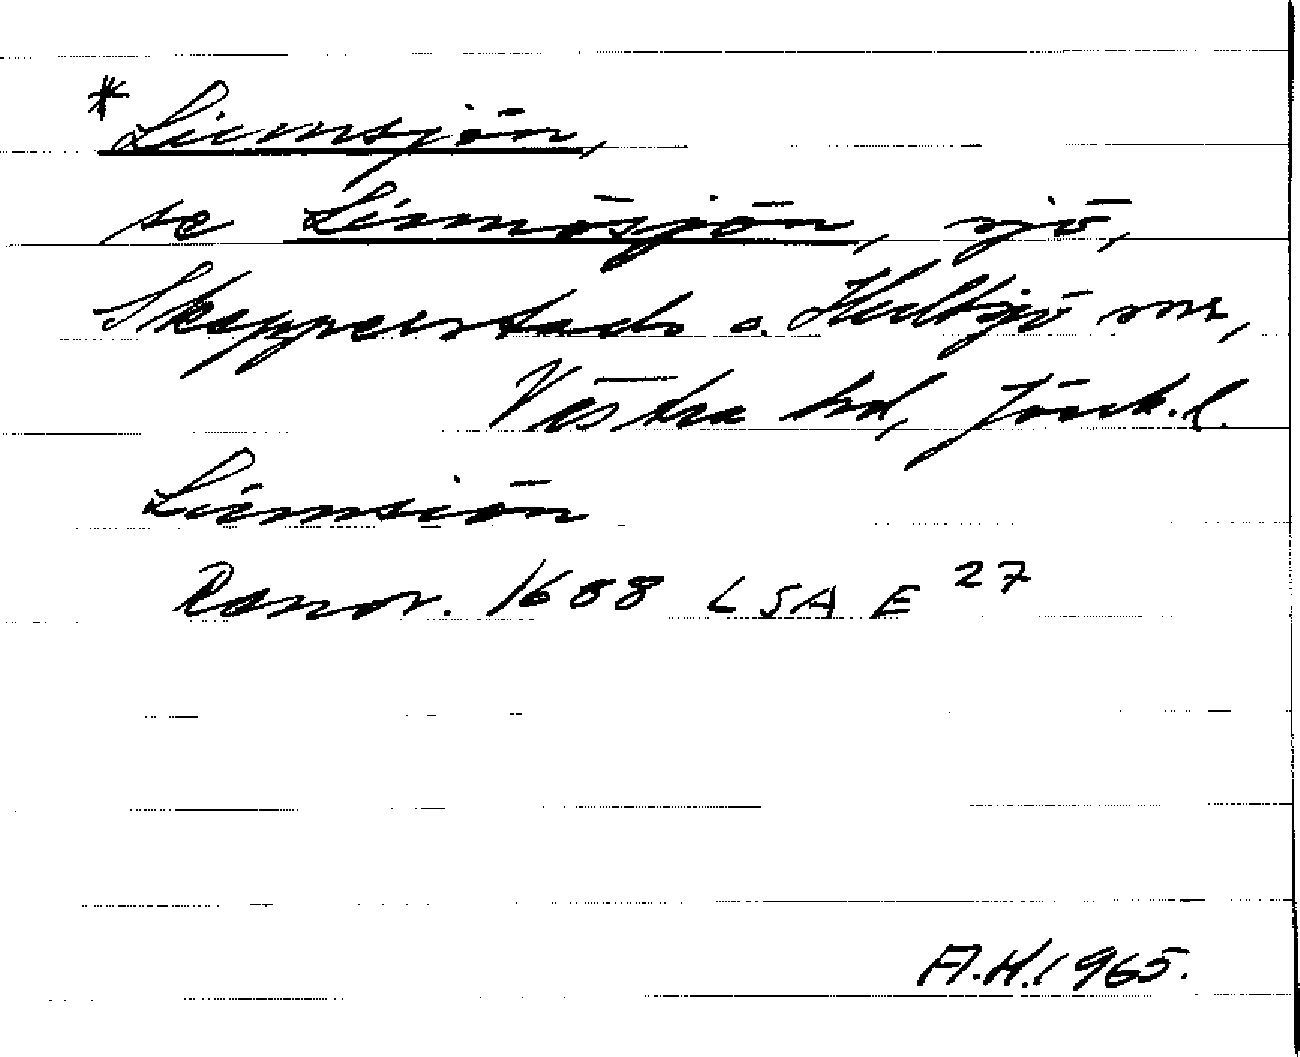 *Limmsjön,
se Limmösjön, sjö,
Skepperstads o. Hultsjö snr,
Västra hd, Jönk. l.
Limmsiön
Ransr. 1688 LSA E 27
A.H. 1965.